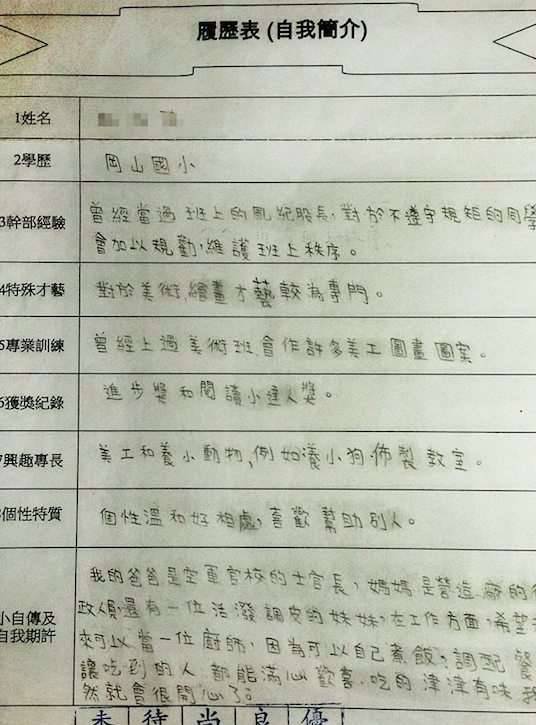 履歷表 (自我簡介)
1姓名
2學歷 岡山國小
3幹部經驗 曾經當過班上的風紀股長,對於不遵守規矩的同學
會加以規勸,維護班上秩序。
4特殊才藝 對於美術,繪畫才藝較為專門。
5專業訓練 曾經上過美術班,會作許多美工圖畫圖案。
6獲獎紀錄 進步獎和閱讀小達人獎。
7興趣專長 美工和養小動物,例如養小狗、佈製教室。
8個性特質 個性溫和好相處,喜歡幫助別人。
小自傳及
自我期許
我的爸爸是空軍官校的士官長,媽媽是營造廠的行
政人員,還有一位活潑調皮的妹妹,在工作方面,希望
來可以當一位廚師,因為可以自己煮飯,調配
讓吃到的人都能滿心歡喜,吃的津津有味,我
然就會很開心了。
未 待 当 良 優